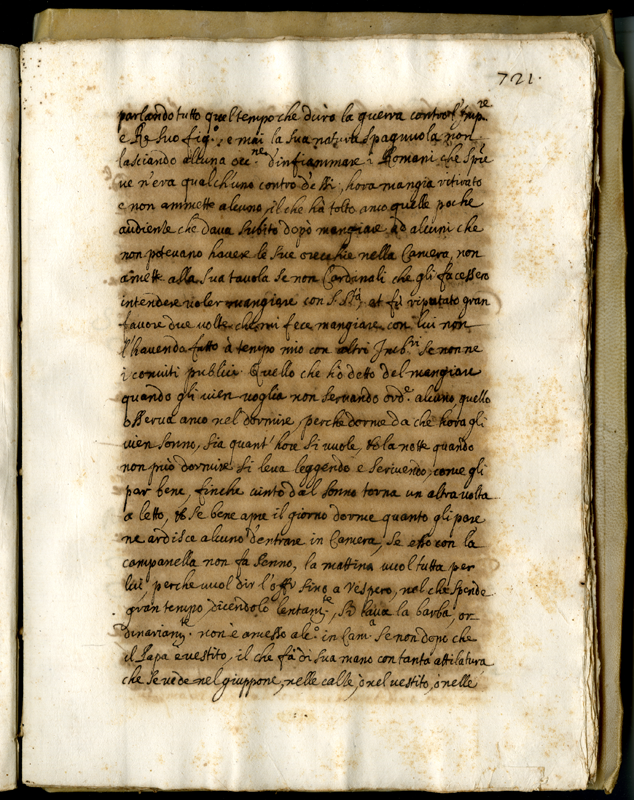 721.
parlando tutto quel tempo che durò la guerra contro l'Imp.re
e Rè suo fig.o, e mai la sua natura spagnuola non
lasciando alcuna occ.ne d'infiammare i Romani che
ve n'era qualch'uno contro d'essi, hora mangia ritirato
e non ammette alcuno, il che hà tolto anco quelle poche
audienze che dava subito dopò mangiare ad alcuni che
non potevano havere le sue orecchie nella Camera, non
amette alla sua tavola se non Cardinali che gli facessero
intendere voler mangiare con S. S.tà et fù riputato gran
favore due volte che mi fece mangiare con lui non
l'havendo fatto à tempo mio con altri Imb.ri se non ne
i conviti publici. Quello che hò detto del mangiare
quando gli vien voglia non servando ord.e alcuno, quello
osserva anco nel dormire, perche dorme da che hora gli
vien sonno, sia quant'hore si vuole, et la notte quando
non può dormire si leva leggendo e scrivendo, come gli
par bene, finche vinto dal sonno torna un altra volta
a letto, et se bene apre il giorno dorme quanto gli pare
ne ardisce alcuno d'entrare in Camera, se esso con la
campanella non fa senno, la mattina vuol tutta per
lui, perche vuol dir l'off.o sino a Vespero, nel che spende
gran tempo dicendolo lentam.te, si lava la barba, or
dinariam.te non è amesso alc.o in Cam.a se non dopo che
il Papa è vestito, il che fà di sua mano con tanta attilatura
che se vede nel giuppone, nelle calle, ò nel vestito, ò nelle